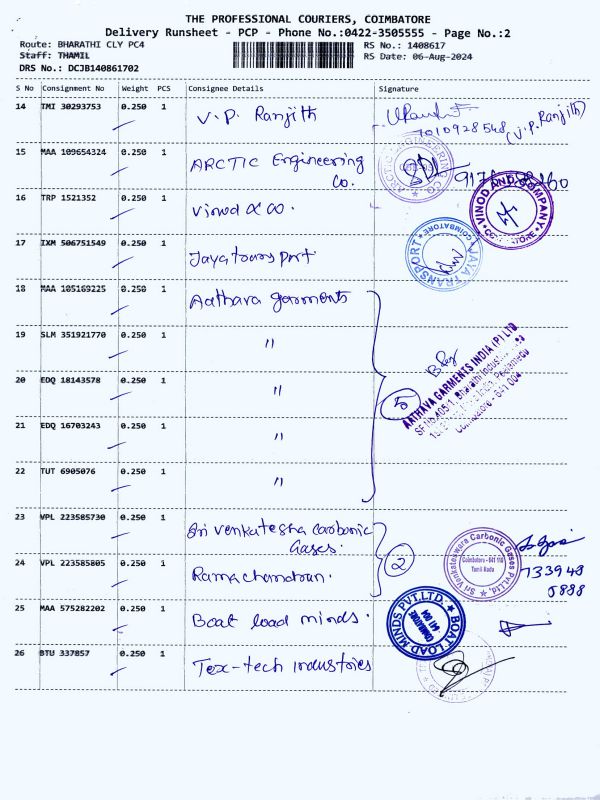 THE PROFESSIONAL COURIERS, COIMBATORE
Delivery Runsheet - PCP - Phone No.:0422-3505555 - Page No.:2
Route: BHARATHI CLY PC4
Staff: THAMIL
DRS No.: DCJB140861702
RS No.: 1408617
RS Date: 06-Aug-2024
S No Consignment No Weight PCS Consignee Details Signature
14 TMI 30293753 0.250 1 V.P. Ranjith
(V.P.Ranjith)
15 MAA 109654324 0.250 1 ARCTIC Engineering
Co.
ARCTIC ENGINEERING CO.
16 TRP 1521352 0.250 1 Vinod & Co.
VINOD AND COMPANY
17 IXM 506751549 0.250 1 Jayatoursport
JAYA TRANSPORT
COIMBATORE
18 MAA 105169225 0.250 1 Aathava garments
19 SLM 351921770 0.250 1 "
20 EDQ 18143578 0.250 1 "
5
AATHAVA GARMENTS INDIA (P) LTD
SF No.405/1, Bharathi
Coimbatore - 641 004
21 EDQ 16703243 0.250 1 "
22 TUT 6905076 0.250 1 "
23 VPL 223585730 0.250 1 Sri Venkatesha Carbonic
Gases.
24 VPL 223585805 0.250 1 Ramachandran.
2
Sri Venkateswara Carbonic Gases Pvt.Ltd.
Coimbatore - 641 110
Tamil Nadu
733943
0888
25 MAA 575282202 0.250 1 Boat load minds.
BOAT LOAD MINDS PVT.LTD.
COIMBATORE
641 004
26 BTU 337857 0.250 1 Tex-tech industries